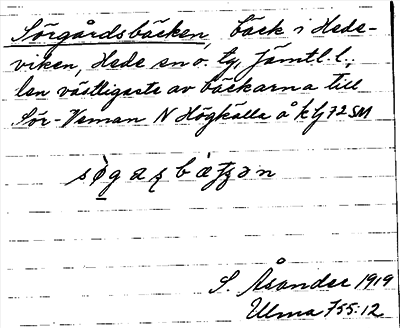 Sörgårdsbäcken, bäck i Hede-
viken, Hede sn o. tg, Jämtl. l.,
den västligaste av bäckarna till
Sör-Veman N Högkälla å kbl 72 SM
S. Åsander 1919
Ulma 755:12